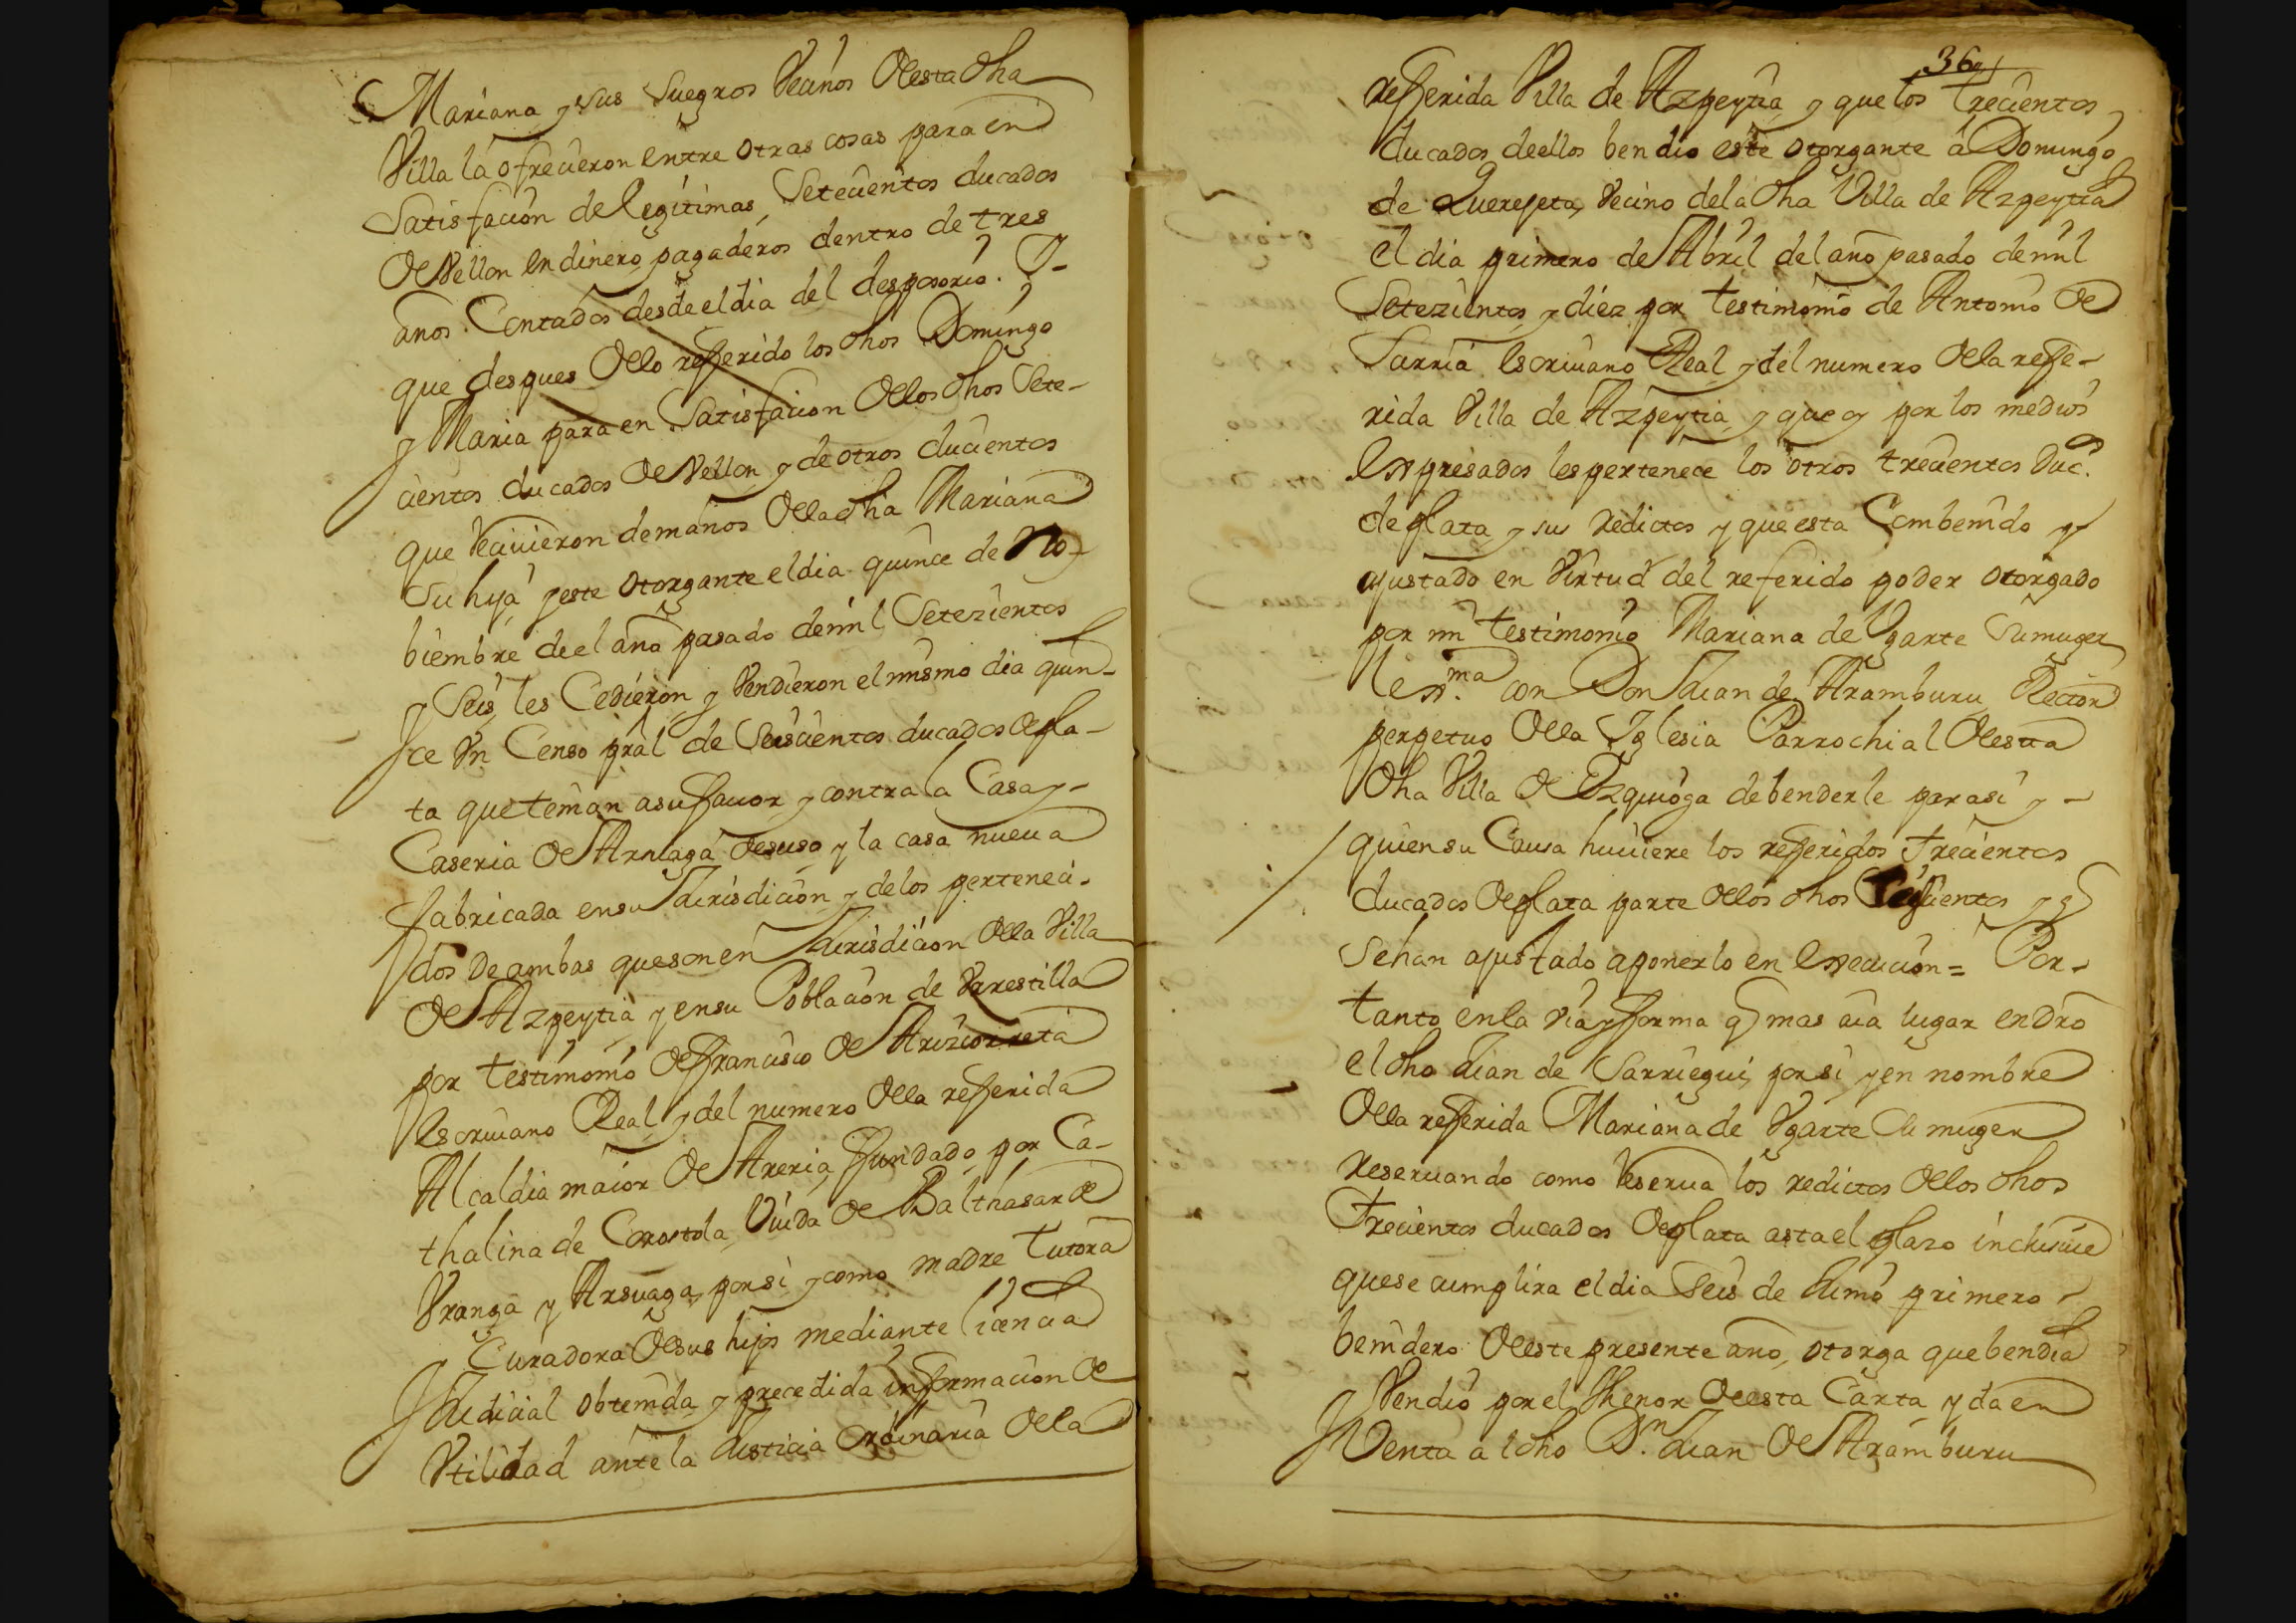 Mariana y sus suegros Vecinos desta dha
Villa la ofrecieron entre otras cosas para en
Satisfacion de legitimas, Setecientos ducados
de Vellon en dinero pagaderos dentro de tres
años. Contados desde el dia del desposorio. Y-
que despues dello refferido los dhos Domingo
y Maria para en Satisfacion dellos dhos Sete-
cientos ducados de Vellon y de otros ducientos
que recivieron de manos della dha Mariana
su hija y este otorgante el dia quince de No-
biembre de el año pasado de mil Setezientos
y Seis, les Cedieron y Vendieron el mismo dia quin-
ce Vn Censo pral de Seiscientos ducados de pla-
ta que tenian a su favor y contra la Casa y-
Caseria de Arriaga de suso y la casa nueva
fabricada en su Jurisdicion y de los perteneci-
dos de ambas que son en Jurisdicion della Villa
de Azpeytia y en su Poblacion de Vrrestilla
por testimonio de Francisco de Arizcorreta
escrivano Real y del numero della refferida
Alcaldia maior de Areria, fundado por Ca-
thalina de Corostola, Viuda de Balthasar de
Vranga y Arsuaga, por si y como madre tutora
y Curadora de sus hijos mediante licencia
Judicial obtenida y precedida informacion de
Vtilidad ante la Justicia ordinaria della
36
refferida Villa de Azpeytia y que los trecientos
ducados de ellos bendio este otorgante a Domingo
de Querejeta, Vecino de la dha Villa de Azpeytia
el dia primero de Abril del año pasado de mil
Setezientos y diez por testimonio de Antonio de
Sarria escrivano Real y del numero della reffe-
rida Villa de Azpeytia y que oy por los medios
expresados les pertenece los otros trecientos Duc.s
de plata y sus redictos y que esta Combenido y
ajustado en Virtud del referido poder otorgado
por mi testimonio Mariana de Vgarte Su muger
con Don Juan de Aramburu, Rector
perpetuo della Iglesia Parrochial desta
dha Villa de Ezquioga de benderle para si y-
quien su Causa huviere los refferidos trecientos
ducados de plata parte dellos dhos y q
se han ajustado a ponerlo en execucion = Por-
tanto en la via y forma q mas aia lugar en dro
el dho Juan de Sarriegui, por si y en nombre
della refferida Mariana de Vgarte su muger
reservando como reserva los redictos dellos dhos
Trecientos ducados de plata asta el plazo inclusive
que se cumplira el dia Seis de Junio primero
benidero deeste presente año, otorga que bendia
y Vendio por el thenor de esta Carta y da en
Venta al dho D.n Juan de Aramburu